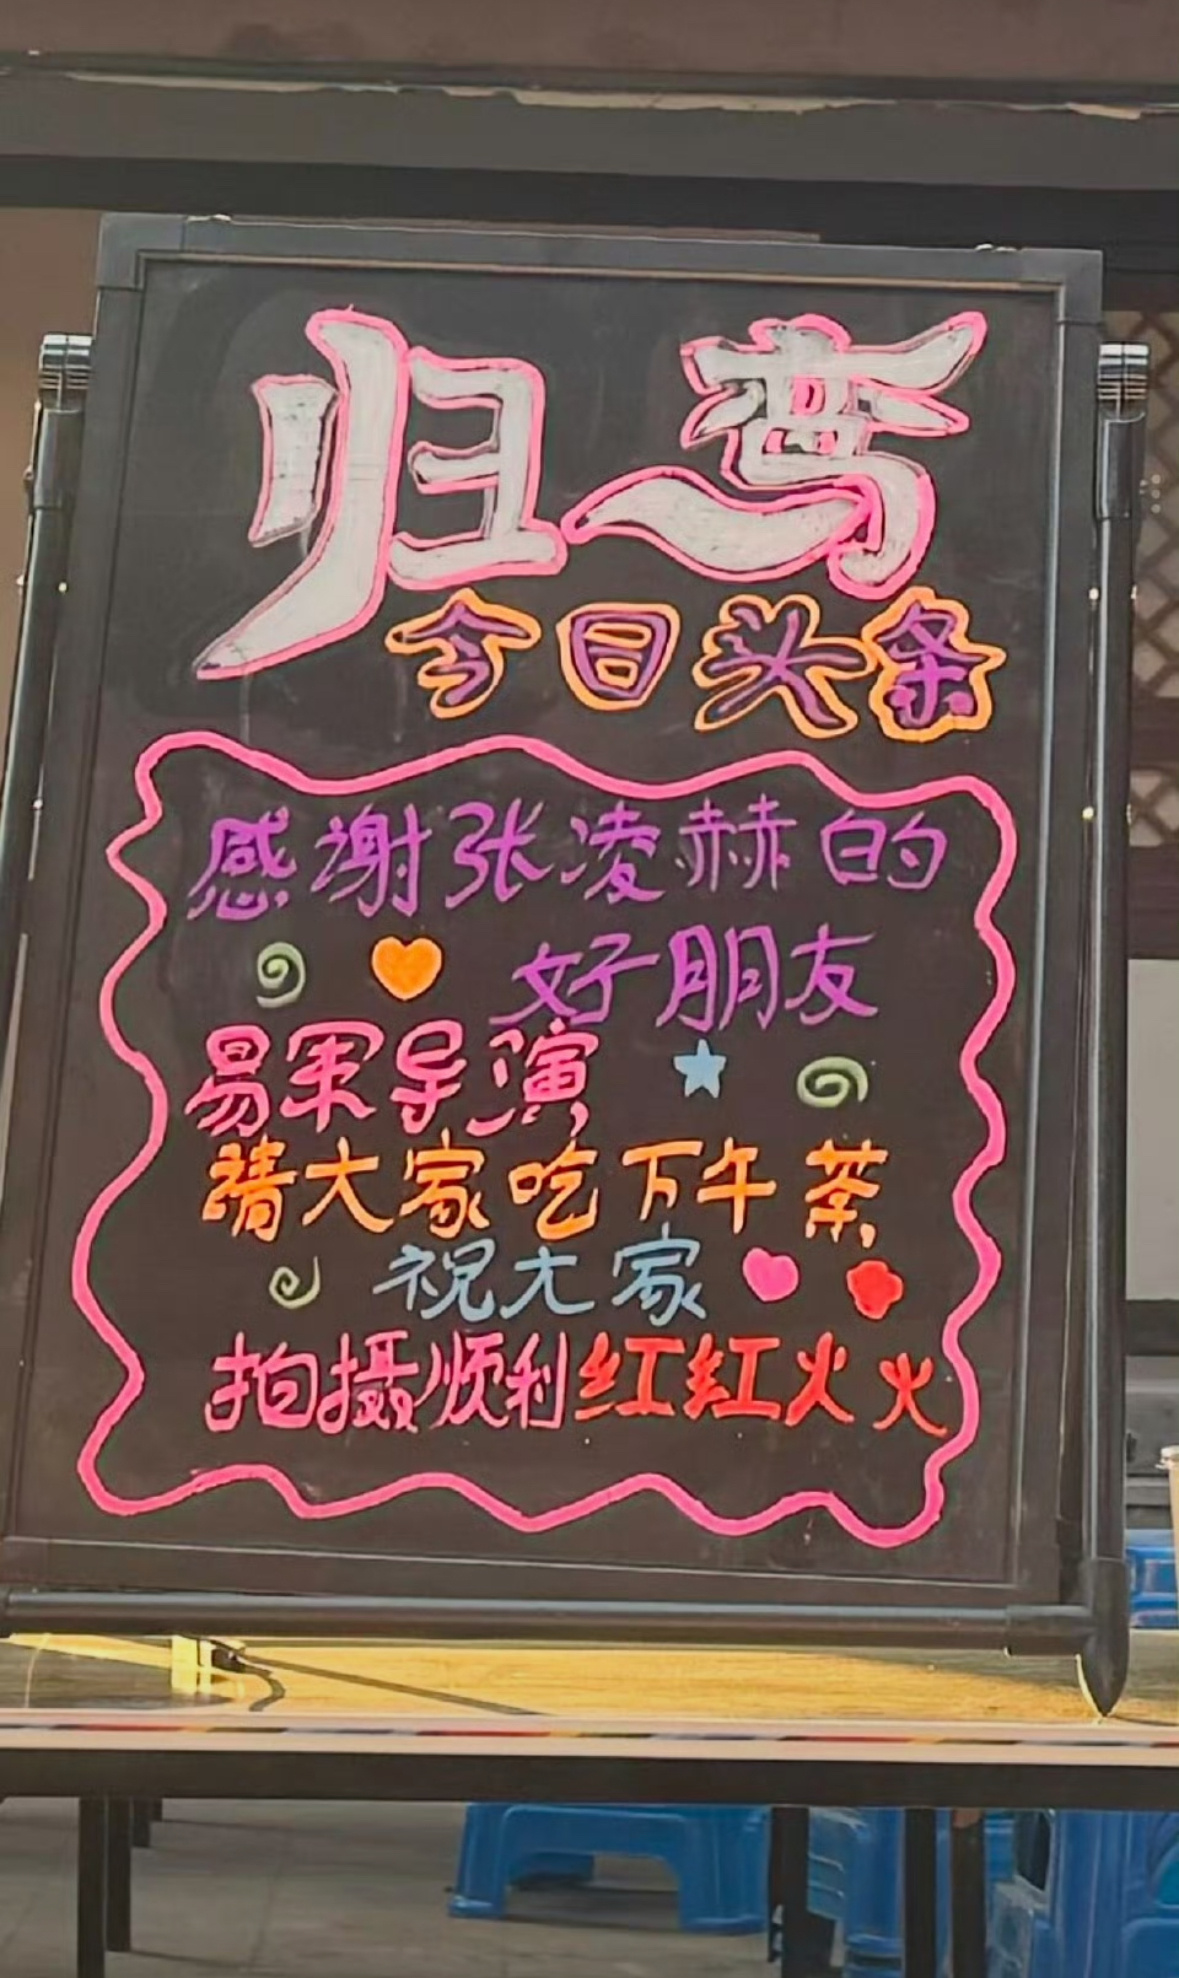 归鸾
今日头条
感谢张凌赫的
好朋友
易军导演
请大家吃下午茶
祝大家
拍摄顺利红红火火